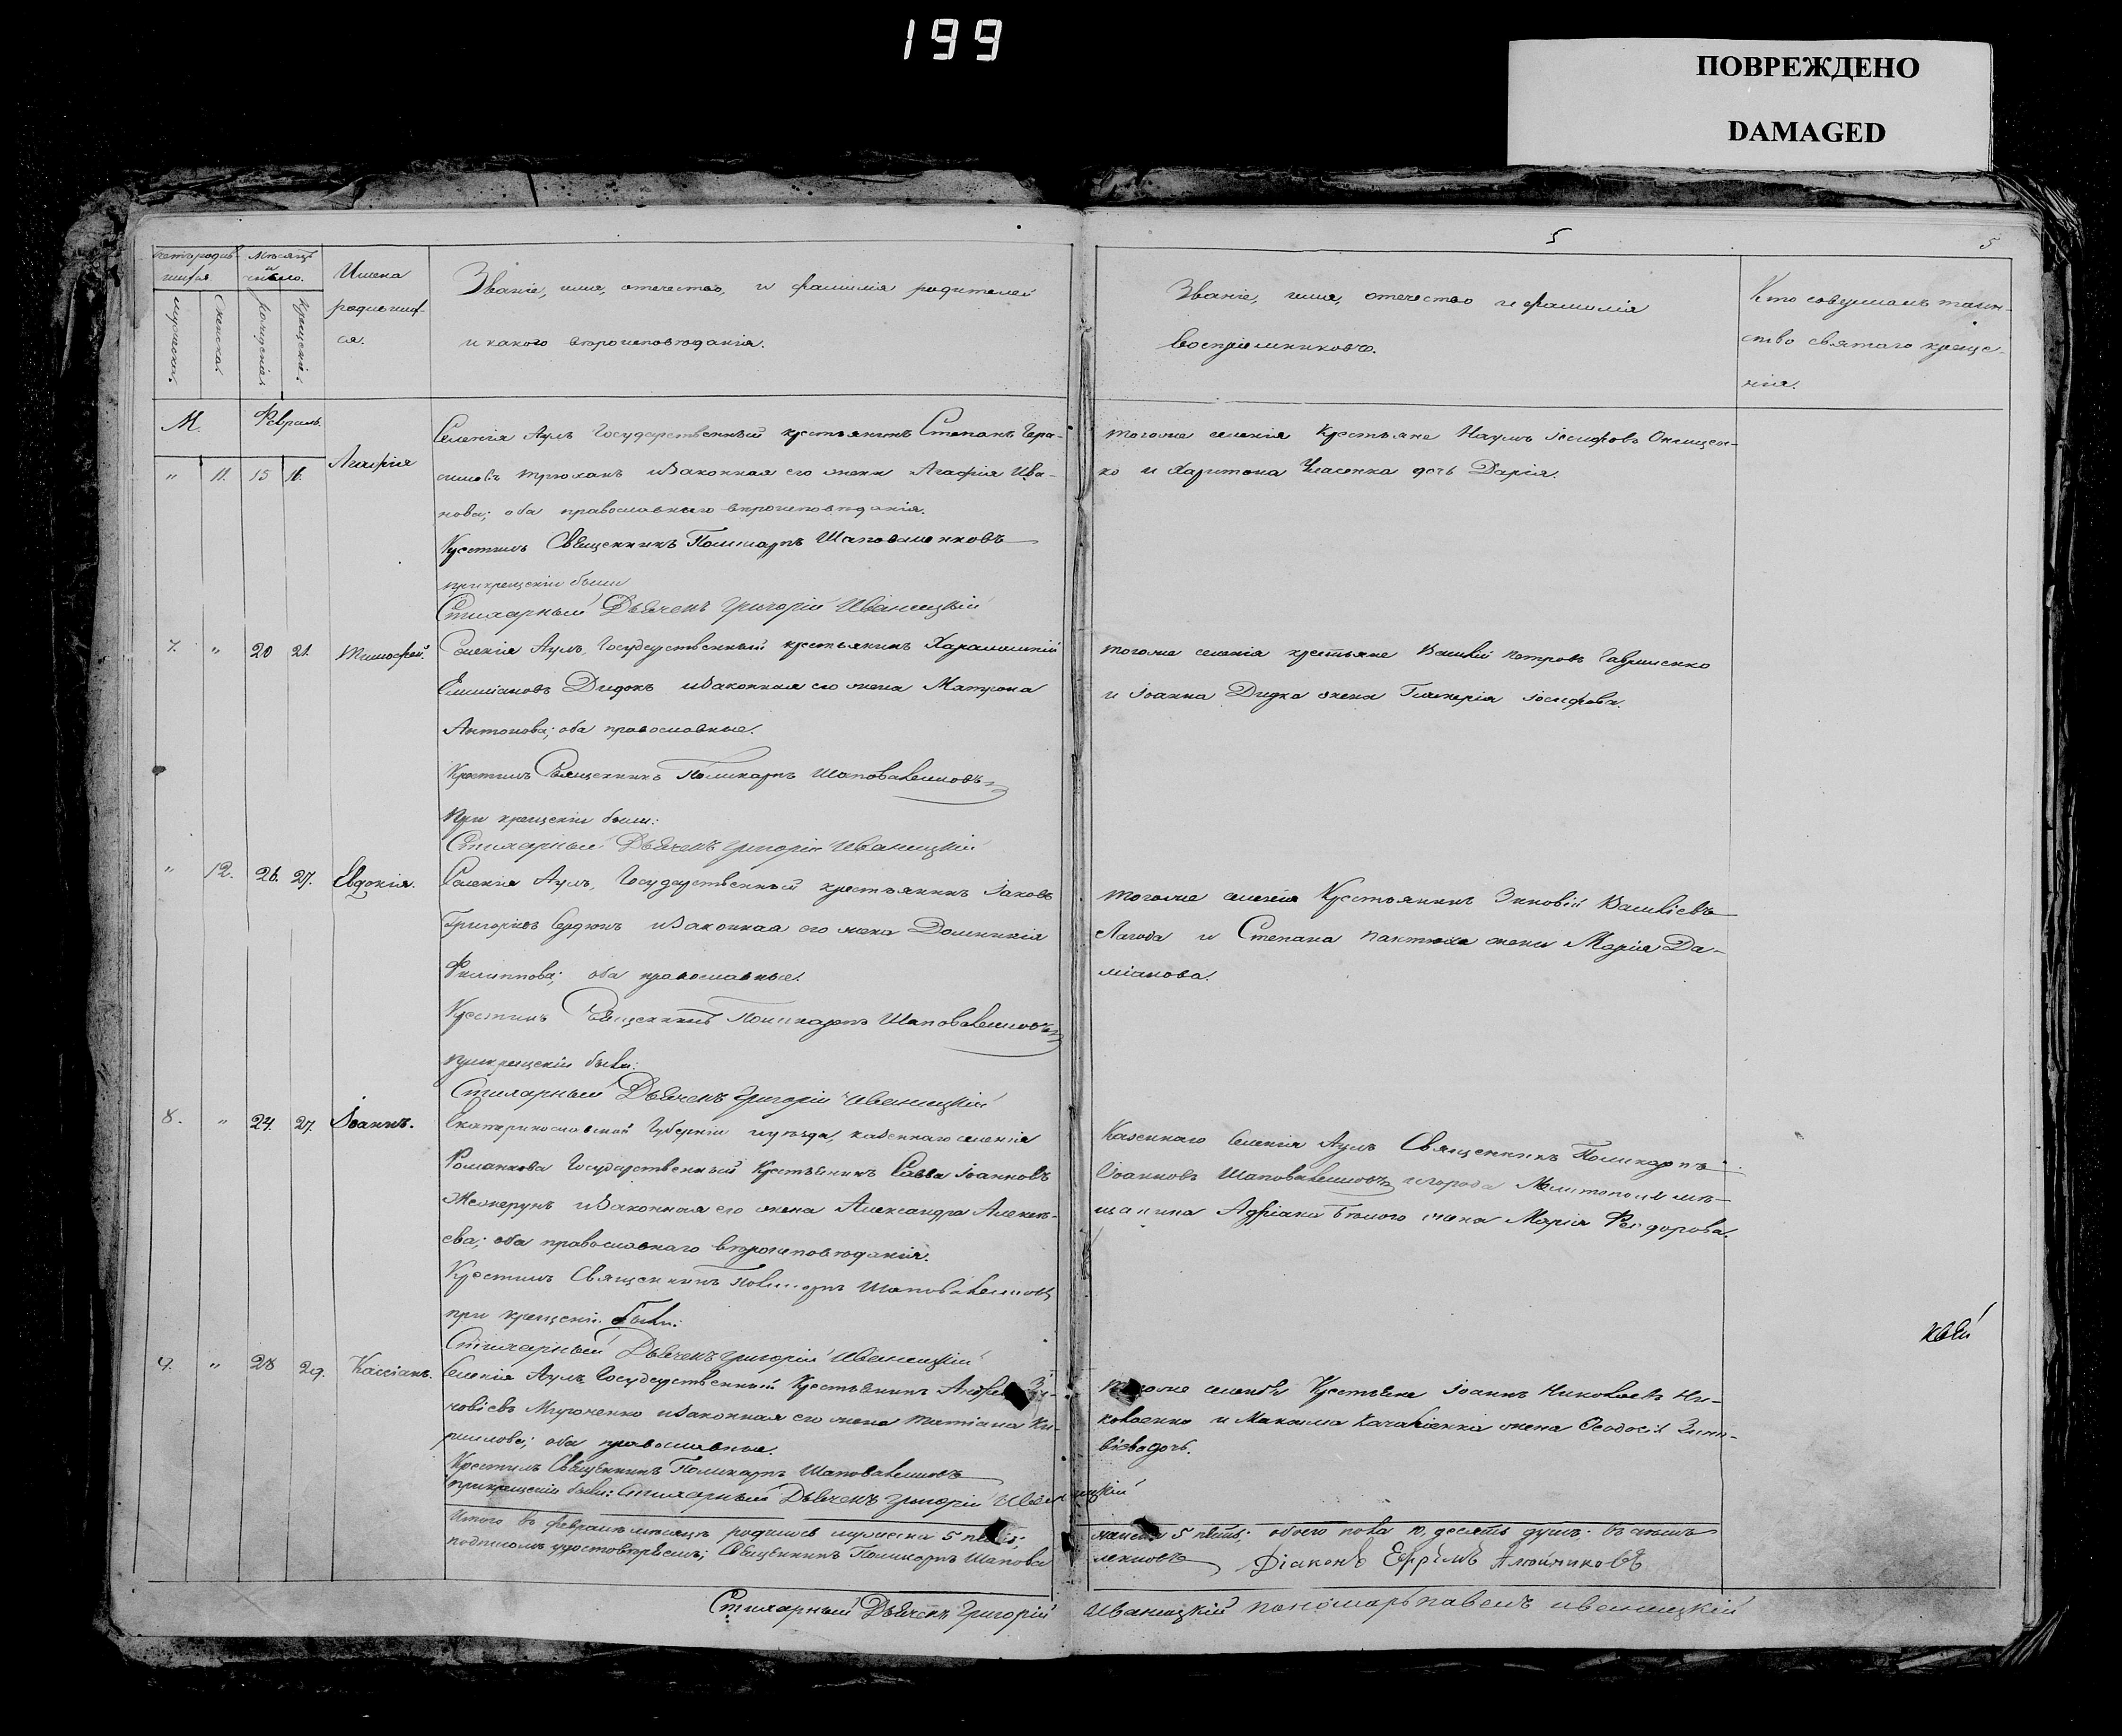 199
ПОВРЕЖДЕНО
DAMAGED
5
5
Мѣсяцъ
и
число.
Имена
родивших-
ся.
Званіе, имя, отечество, и фамилія родителей
и какого вѣроисповѣданія.
Званіе, имя, отечество и фамилія
воспріемниковъ.
Кто совершалъ таин-
ство святаго креще-
нія.
мужеска.
женска.
рожденія.
крещенія.
М.
Февраль.
" 11. 15 16.
Агафія
Селенія Аулъ Государственный крестьянинъ Степанъ Гера-
симовъ Трюханъ и законная его жена Агафія Ива-
нова; оба православнаго вѣроисповѣданія.
Крестилъ Священникъ Поликарпъ Шаповаленковъ
при крещеніи были
Стихарный Дьячекъ Григорій Иваницкій
тогоже селенія Крестьяне Наумъ Іосифовъ Онищен-
ко и Харитона Власенка дочь Дарія.
7. " 20 21. Тимофей.
Селенія Аулъ, Государственный крестьянинъ Харалампій
Емиліановъ Дидокъ и законная его жена Матрона
Антонова; оба православные.
Крестилъ Священникъ Поликарпъ Шаповаленковъ
При крещеніи были:
Стихарный Дьячекъ Григорій Иваницкій
тогоже селенія крестьяне Василій Петровъ Гавриленко
и Іоанна Дидка жена Гликерія Іосифова.
" 12. 26. 27. Евдокія.
Селенія Аулъ, Государственный крестьянинъ Іаковъ
Григоріевъ Сердюкъ и законная его жена Домникія
Филиппова; оба православные.
Крестилъ Священникъ Поликарпъ Шаповаленковъ
при крещеніи были:
Стихарный Дьячекъ Григорій Иваницкій
тогоже селенія Крестьянинъ Зиновій Василіевъ
Лагода и Степана Пантюха жена Марія Да-
міанова.
8. " 24. 27. Іоаннъ.
Екатеринославской Губерніи и уѣзда, казеннаго селенія
Романкова Государственный Крестьянинъ Савва Іоанновъ
и законная его жена Александра Алексѣ-
ева; оба православнаго вѣроисповѣданія.
Крестилъ Священникъ Поликарпъ Шаповаленковъ
при крещеніи были:
Стихарный Дьячекъ Григорій Иваницкій
Казеннаго Селенія Аулъ Священникъ Поликарпъ
Іоанновъ Шаповаленковъ и города Мелитополя мѣ-
щанина Адріана Бѣлого жена Марія Феодорова.
9. " 28 29. Кассіанъ.
Селенія Аулъ Государственный Крестьянинъ Андрей Зи-
новіевъ и законная его жена Татіана Ки-
риллова; оба православные.
Крестилъ Священникъ Поликарпъ Шаповаленковъ
при крещеніи были: Стихарный Дьячекъ Григорій Иваницкій
тогоже селенія Крестьяне Іоаннъ Николаевъ Ни-
колаенко и Максима жена Феодосія Зино-
віева дочь.
Итого въ февралѣ мѣсяцѣ родилось мужеска 5 пять;
женска 5 пять; обоего пола 10, десять душъ. въ чемъ
подписомъ удостовѣряемъ; Священникъ Поликарпъ Шапова
ленковъ Діаконъ Ефремъ
Стихарный Дьячекъ Григорій Иваницкій пономарь павелъ иваницкій